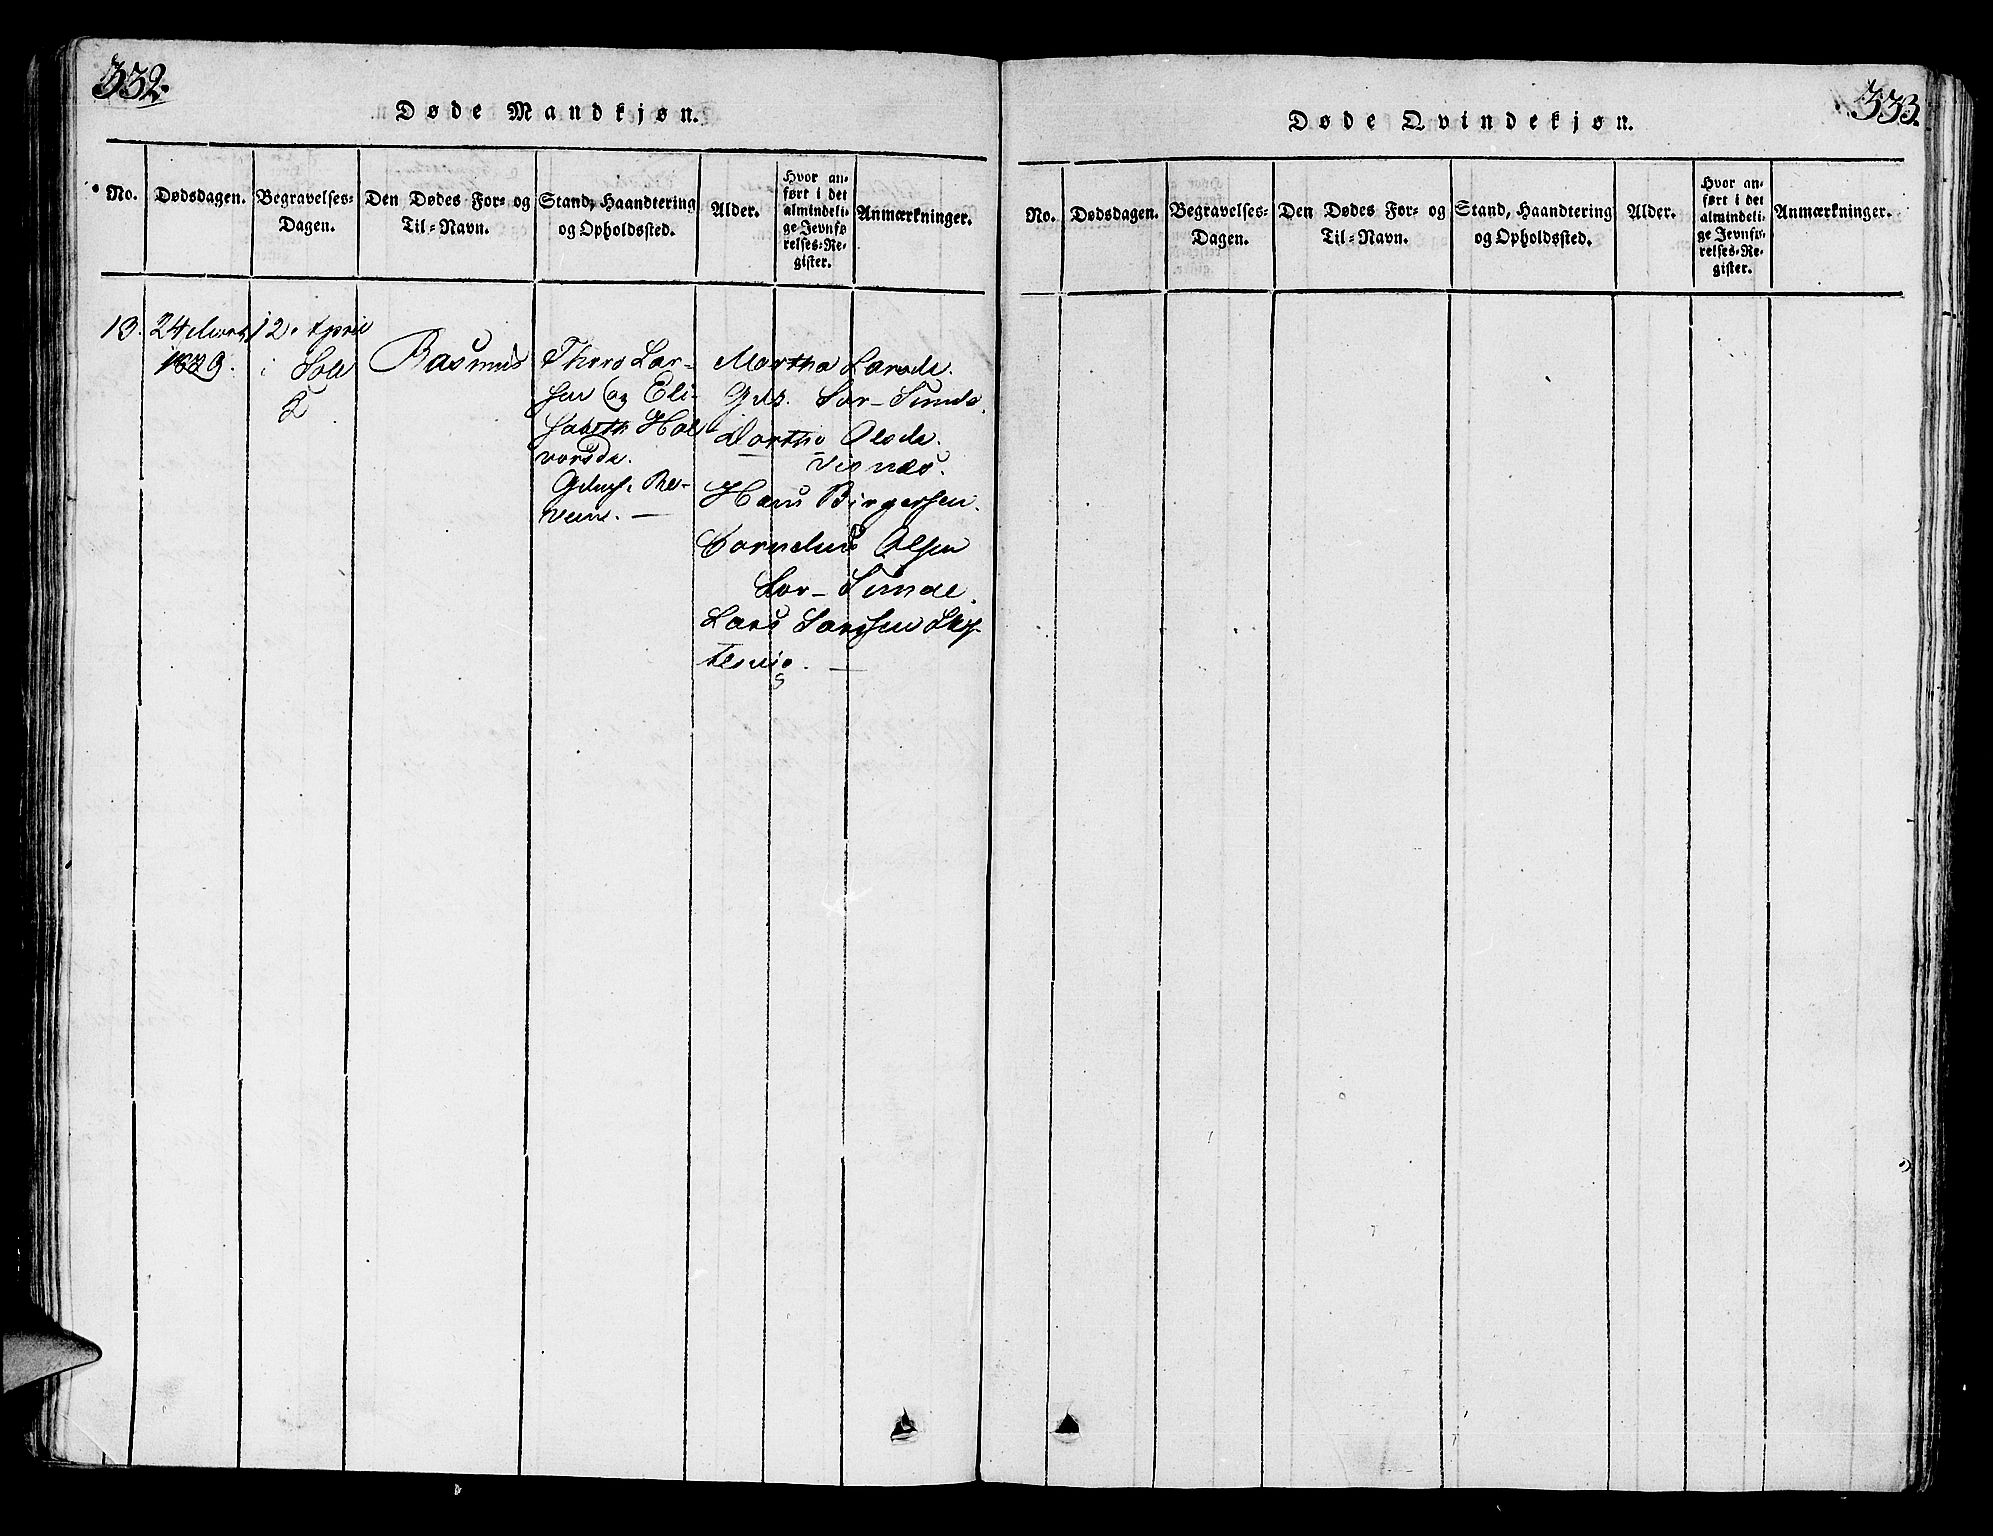 332.
Døde Mandkjøn.
No.
Dødsdagen.
Begravelses=
Dagen.
Den Dødes For= og
Til=Navn.
Stand, Haandtering
og Opholdssted.
Alder.
Hvor an=
ført i det
almindeli=
ge Jevnfø=
relses=Re=
gister.
Anmærkninger.
13.
24 Marts
1829.
12. April
i Sole
K
Rasmus
Thore Lar-
sen og Eli-
sabeth Hal
vorsdr.
Re-
Martha Larsdr.
Gdk. Sør-Sunde.
Dorthe Olsdr.
Visnæs.
Hans Birgersen.
Cornelius Olsen
Sør-Sunde.
Lars Larssen
333.
Døde Qvindekjøn.
No.
Dødsdagen.
Begravelses=
Dagen.
Den Dødes For= og
Til=Navn.
Stand, Haandtering
og Opholdssted.
Alder.
Hvor an=
ført i det
almindeli=
ge Jevnfø=
relses=Re=
gister.
Anmærkninger.